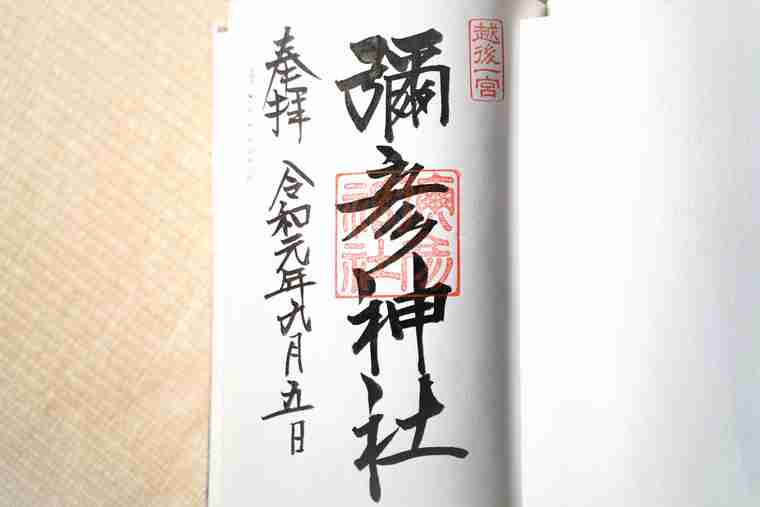 越後一宮
彌彦神社
彌彦神社
奉拝
令和元年九月五日